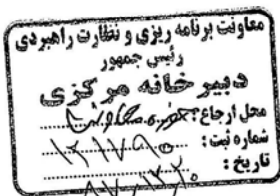 معاونت برنامه ریزی و نظارت راهبردی
رئیس جمهور
دبیر خانه مرکزی
محل ارجاع:
شماره ثبت: ۱۲۱۷۹۰
تاریخ: